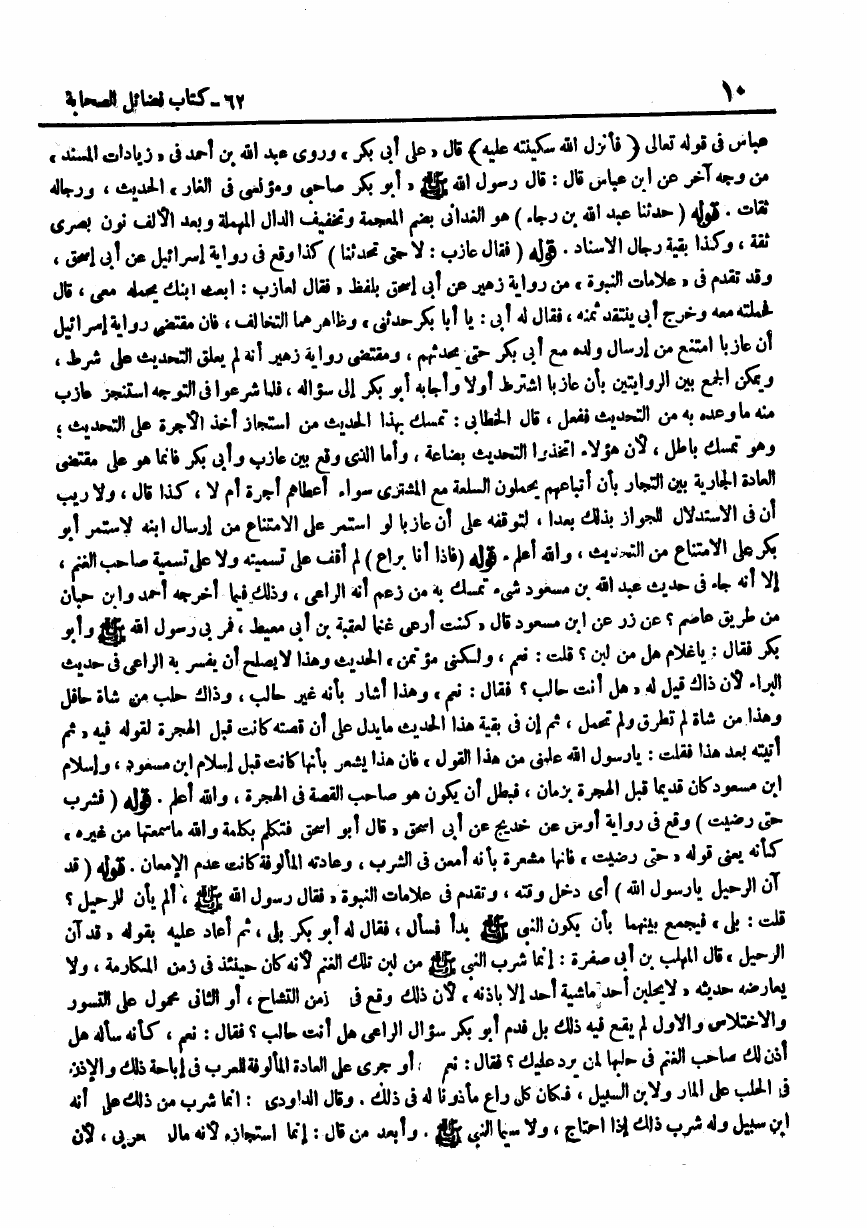 ١٠
٦٢ - كتاب فضائل الصحابة
عباس فى قوله تعالى ﴿ فأنزل الله سكينته عليه﴾ قال « على أبى بكر » وروى عبد الله بن أحمد فى « زيادات المسند »
من وجه آخر عن ابن عباس قال : قال رسول الله ﷺ « أبو بكر صاحبى ومؤنسى فى الغار » الحديث ، ورجاله
ثقات . قوله ( حدثنا عبد الله بن رجاء ) هو الغدانى بضم المعجمة وتخفيف الدال المهملة وبعد الألف نون بصرى
ثقة ، وكذا بقية رجال الاسناد . قوله ( فقال عازب : لا حتى تحدثنا ) كذا وقع فى رواية إسرائيل عن أبى إسحق ،
وقد تقدم فى « علامات النبوة » من رواية زهير عن أبى إسحق بلفظ « فقال لعازب : ابعث ابنك يحمله معى ، قال
فحملته معه وخرج أبى ينتقد ثمنه ، فقال له أبى : يا أبا بكر حدثنى » وظاهرهما التخالف ، فان مقتضى رواية إسرائيل
أن عازبا امتنع من إرسال ولده مع أبى بكر حتى يحدثهم ، ومقتضى رواية زهير أنه لم يعلق التحديث على شرط ،
ويمكن الجمع بين الروايتين بأن عازبا اشترط أولا وأجابه أبو بكر إلى سؤاله ، فلما شرعوا فى التوجه استنجز عازب
منه ما وعده به من التحديث ففعل ، قال الخطابى : تمسك بهذا الحديث من استجاز أخذ الأجرة على التحديث ؛
وهو تمسك باطل ، لأن هؤلاء اتخذوا التحديث بضاعة ، وأما الذى وقع بين عازب وأبى بكر فانما هو على مقتضى
العادة الجارية بين التجار بأن أتباعهم يحملون السلعة مع المشترى سواء أعطاهم أجرة أم لا ، كذا قال ، ولا ريب
أن فى الاستدلال للجواز بذلك بعدا ، لتوقفه على أن عازبا لو استمر على الامتناع من إرسال ابنه لاستمر أبو
بكر على الامتناع من التحديث ، والله أعلم . قوله (فاذا أنا براع ) لم أقف على تسميته ولا على تسمية صاحب الغنم ،
إلا أنه جاء فى حديث عبد الله بن مسعود شىء تمسك به من زعم أنه الراعى ، وذلك فيما أخرجه أحمد وابن حبان
من طريق عاصم ؟ عن زر عن ابن مسعود قال « كنت أرعى غنما لعقبة بن أبى معيط ، فمر بى رسول الله ﷺ وأبو
بكر فقال : ياغلام هل من لبن ؟ قلت : نعم ، ولكنى مؤتمن » الحديث وهذا لا يصلح أن يفسر به الراعى فى حديث
البراء لأن ذاك قيل له « هل أنت حالب ؟ فقال : نعم » وهذا أشار بأنه غير حالب ، وذاك حلب من شاة حافل
وهذا من شاة لم تطرق ولم تحمل ، ثم إن فى بقية هذا الحديث مايدل على أن قصته كانت قبل الهجرة لقوله فيه « ثم
أتيته بعد هذا فقلت : يارسول الله علمنى من هذا القول » فان هذا يشعر بأنها كانت قبل إسلام ابن مسعود ، وإسلام
ابن مسعود كان قديما قبل الهجرة بزمان ، فبطل أن يكون هو صاحب القصة فى الهجرة ، والله أعلم . قوله ( فشرب
حتى رضيت ) وقع فى رواية أوس عن خديج عن أبى اسحق « قال أبو اسحق فتكلم بكلمة والله ماسمعتها من غيره »
كأنه يعنى قوله « حتى رضيت » فانها مشعرة بأنه أمعن فى الشرب ، وعادته المألوفة كانت عدم الإمعان . قوله ( قد
آن الرحيل يارسول الله ) أى دخل وقته ، وتقدم فى علامات النبوة « فقال رسول الله ﷺ ، ألم يأن للرحيل ؟
قلت : بلى » فيجمع بينهما بأن يكون النبى ﷺ بدأ فسأل ، فقال له أبو بكر بلى ، ثم أعاد عليه بقوله « قد آن
الرحيل » قال المهلب بن أبى صفرة : إنما شرب النبى ﷺ من لبن تلك الغنم لأنه كان حينئذ فى زمن المكارمة ، ولا
يعارضه حديثه « لايحلبن أحد ماشية أحد إلا باذنه » لأن ذلك وقع فى زمن التشاح ، أو الثانى محمول على التسور
والاختلاس والاول لم يقع فيه ذلك بل قدم أبو بكر سؤال الراعى هل أنت حالب ؟ فقال : نعم ، كأنه سأله هل
أذن لك صاحب الغنم فى حلبها لمن يرد عليك ؟ فقال : نعم أو جرى على العادة المألوفة للعرب فى إباحة ذلك والإذن
فى الحلب على المار ولابن السبيل ، فكان كل راع مأذونا له فى ذلك . وقال الداودى : انما شرب من ذلك على أنه
ابن سبيل وله شرب ذلك إذا احتاج ، ولا سيما النبى ﷺ . وأبعد من قال : إنما استجازه لأنه مال حربى ، لأن